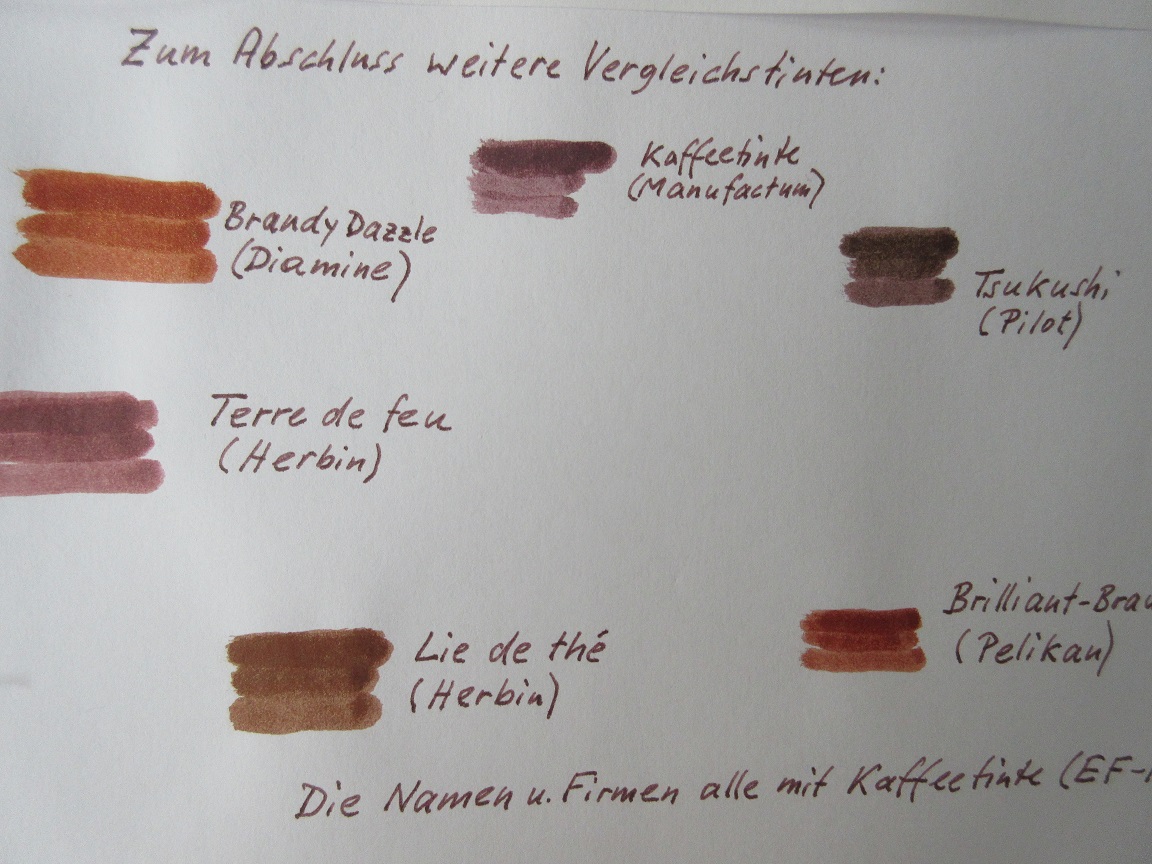 Zum Abschluss weitere Vergleichstinten:
Kaffeetinte
(Manufactum)
Brandy Dazzle
(Diamine)
Tsukushi
(Pilot)
Terre de feu
(Herbin)
Brilliant-Brau
(Pelikan)
Lie de thé
(Herbin)
Die Namen u. Firmen alle mit Kaffeetinte (EF-